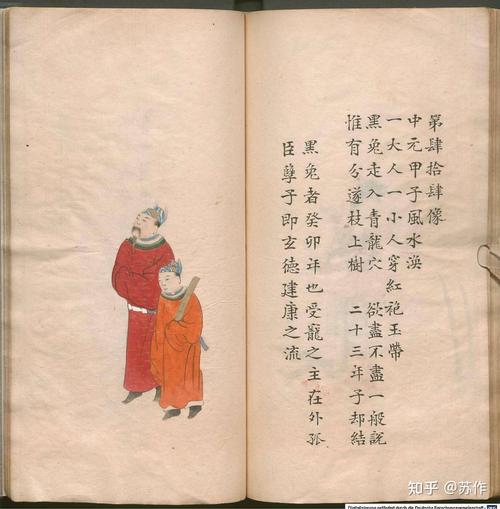 第肆拾肆像
中元甲子風水渙
一大人一小人穿紅袍玉帶
黑兔走入青龍穴 欲盡不盡一般説
惟有分遂枝上樹 二十三年子却結
黑兔者癸卯年也受寵之主在外孤
臣孽子即玄德建康之流
知乎 @苏作
Digitalisierung gefördert durch die Deutsche Forschungsgemeinschaft